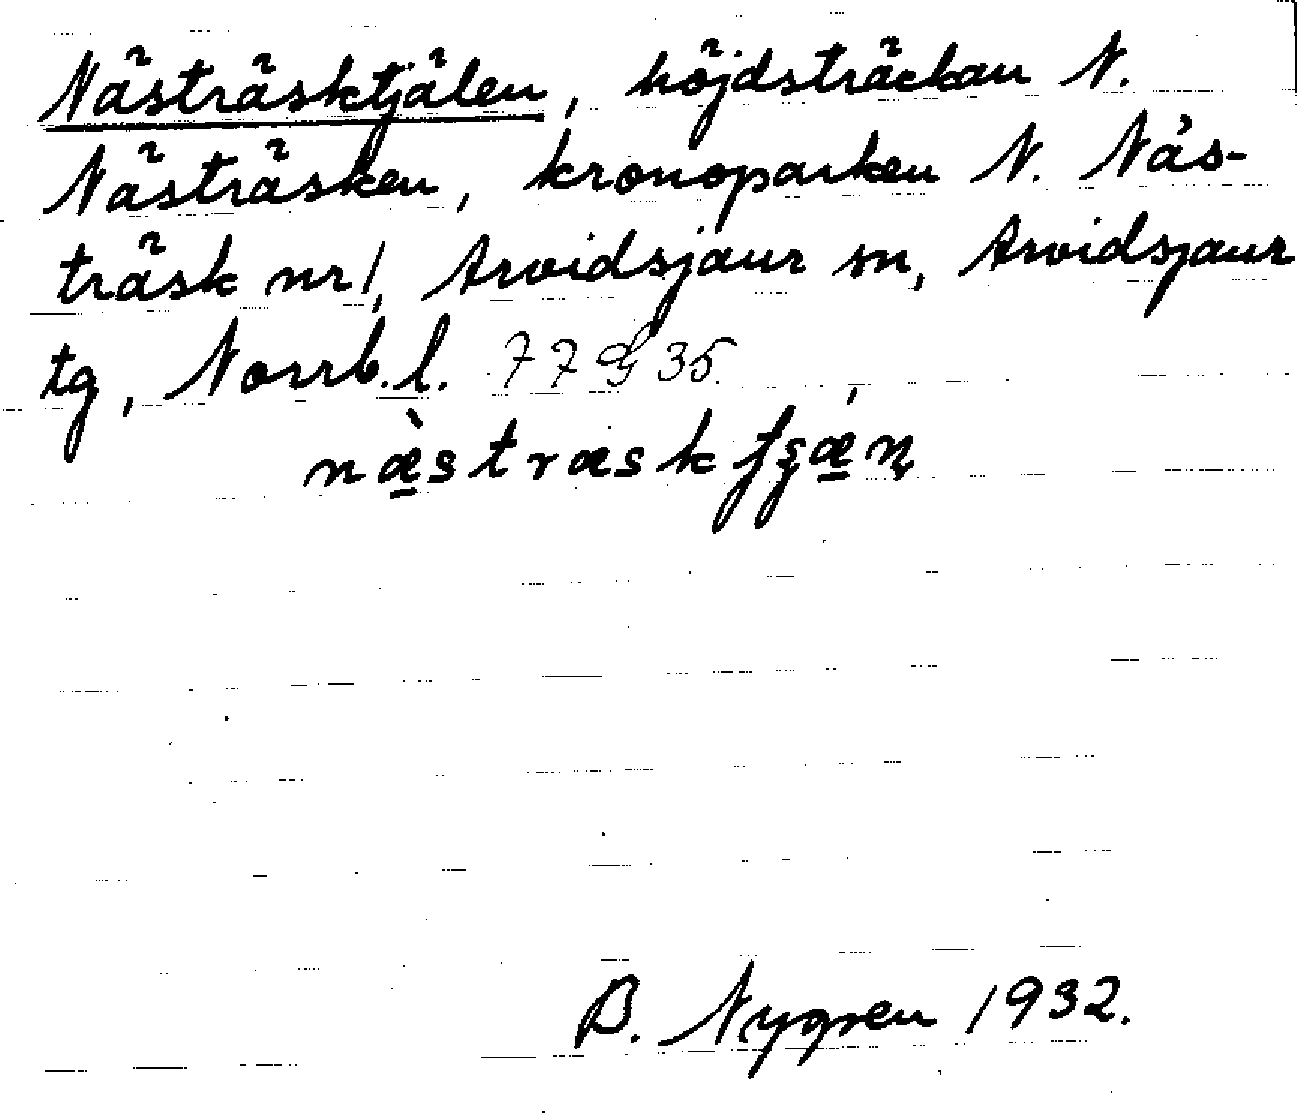 Nästräsktjälen, höjdsträckan N.
Nästräsken, kronoparken N. Näs-
träsk nr 1, Arvidsjaur sn, Arvidsjaur
tg, Norrb. l.
B. Nygren 1932.